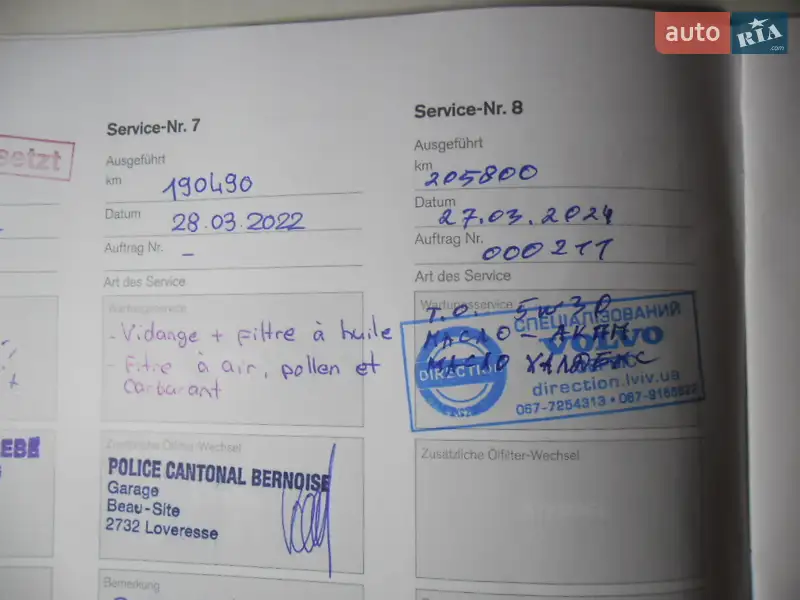 auto RIA
.com
setzt
Service-Nr. 7
Ausgeführt
km 190490
Datum 28.03.2022
Auftrag Nr. –
Art des Service
Wartungsservice
- Vidange + filtre à huile
- Fitre à air, pollen et
carburant
Zusätzliche Ölfilter-Wechsel
POLICE CANTONAL BERNOISE
Garage
Beau-Site
2732 Loveresse
Bemerkung
Service-Nr. 8
Ausgeführt
km 205800
Datum 27.03.2024
Auftrag Nr. 000211
Art des Service
Wartungsservice
т.о. 5w30
масло - АКПП
масло халдекс
СПЕЦІАЛІЗОВАНИЙ
VOLVO
DIRECTION
direction.lviv.ua
067-7254313 •
Zusätzliche Ölfilter-Wechsel